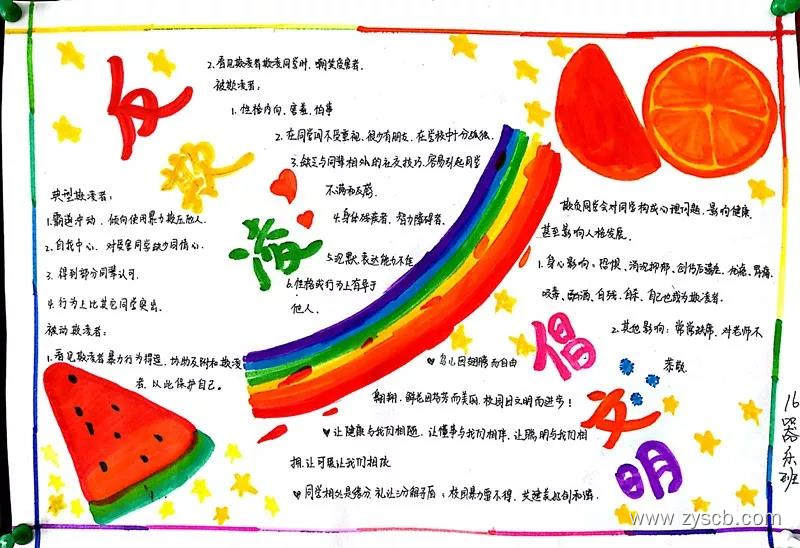 反
欺
凌
倡
文
明
2. 看见欺凌者欺凌同学时,嘲笑受害者.
被欺凌者:
1. 性格内向、害羞、怕事
2. 在同学间不受重视、很少有朋友、在学校中十分孤独.
3. 缺乏与同辈相处的社交技巧.容易引起同学
不满和反感.
4. 身体残疾者、智力障碍者.
5. 沉默、表达能力不佳
6. 性格或行为上有异于
他人.
典型欺凌者:
1. 霸道冲动、倾向使用暴力欺压他人.
2. 自我中心、对受害同学缺少同情心.
3. 得到部分同辈认可.
4. 行为上比其它同学突出.
被动欺凌者:
1. 看见欺凌者暴力行为得逞,协助及附和欺凌
者,以此保护自己。
欺负同学会对同学构成心理问题、影响健康
甚至影响人格发展.
1. 身心影响:恐惧、消沉抑郁、创伤后遗症、忧虑、胃痛.
吸毒、酗酒、自残、自杀、自己也成为欺凌者.
2. 其他影响:常常缺席、对老师不
恭敬
鸟儿因翅膀而自由
翱翔、鲜花因芬芳而美丽、校园因文明而进步!
让健康与我们相随、让懂事与我们相伴、让聪明与我们相
拥、让可爱让我们相依
同学相处是缘分 礼让三分前子后、校园暴力要不得、共建美好创和谐.
16器乐班
www.zyscb.com